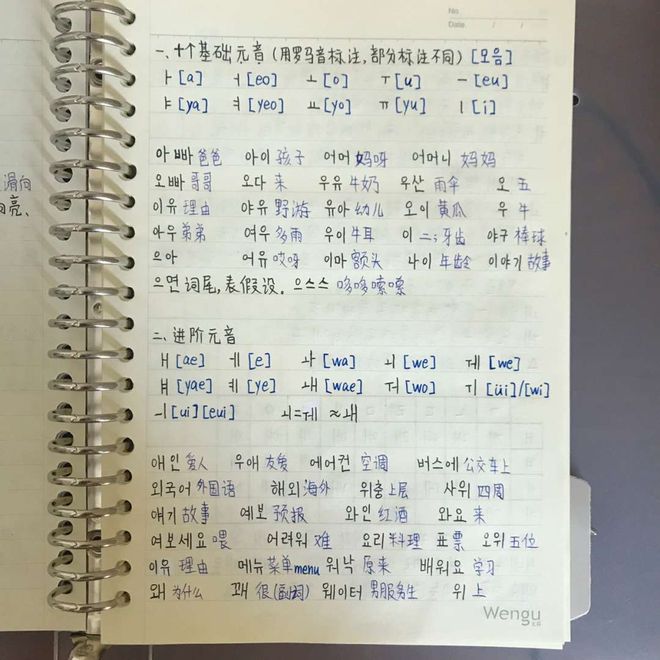 No.
Date. / /
一、十个基础元音(用罗马音标注,部分标注不同)[모음]
ㅏ[a] ㅓ[eo] ㅗ[o] ㅜ[u] ㅡ[eu]
ㅑ[ya] ㅕ[yeo] ㅛ[yo] ㅠ[yu] ㅣ[i]
아빠 爸爸 아이 孩子 어머 妈呀 어머니 妈妈
오빠 哥哥 오다 来 우유 牛奶 우산 雨伞 오 五
이유 理由 야유 野游 유아 幼儿 오이 黄瓜 우 牛
아우 弟弟 여우 多雨 우이 牛耳 이 二;牙齿 야구 棒球
으아 어유 哎呀 이마 额头 나이 年龄 이야기 故事
으면 词尾,表假设. 으스스 哆哆嗦嗦
二、进阶元音
ㅐ[ae] ㅔ[e] ㅘ[wa] ㅚ[we] ㅞ[we]
ㅒ[yae] ㅖ[ye] ㅙ[wae] ㅝ[wo] ㅟ[üi]/[wi]
ㅢ[ui][eui] ㅚ=ㅞ≈ㅙ
애인 爱人 우애 友爱 에어컨 空调 버스에 公交车上
외국어 外国语 해외 海外 위층 上层 사위 四周
얘기 故事 예보 预报 와인 红酒 와요 来
여보세요 喂 어려워 难 요리 料理 표 票 오위 五位
이유 理由 메뉴 菜单menu 워낙 原来 배워요 学习
왜 为什么 꽤 很(副词) 웨이터 男服务生 위 上
Wengu
滑向
亮、